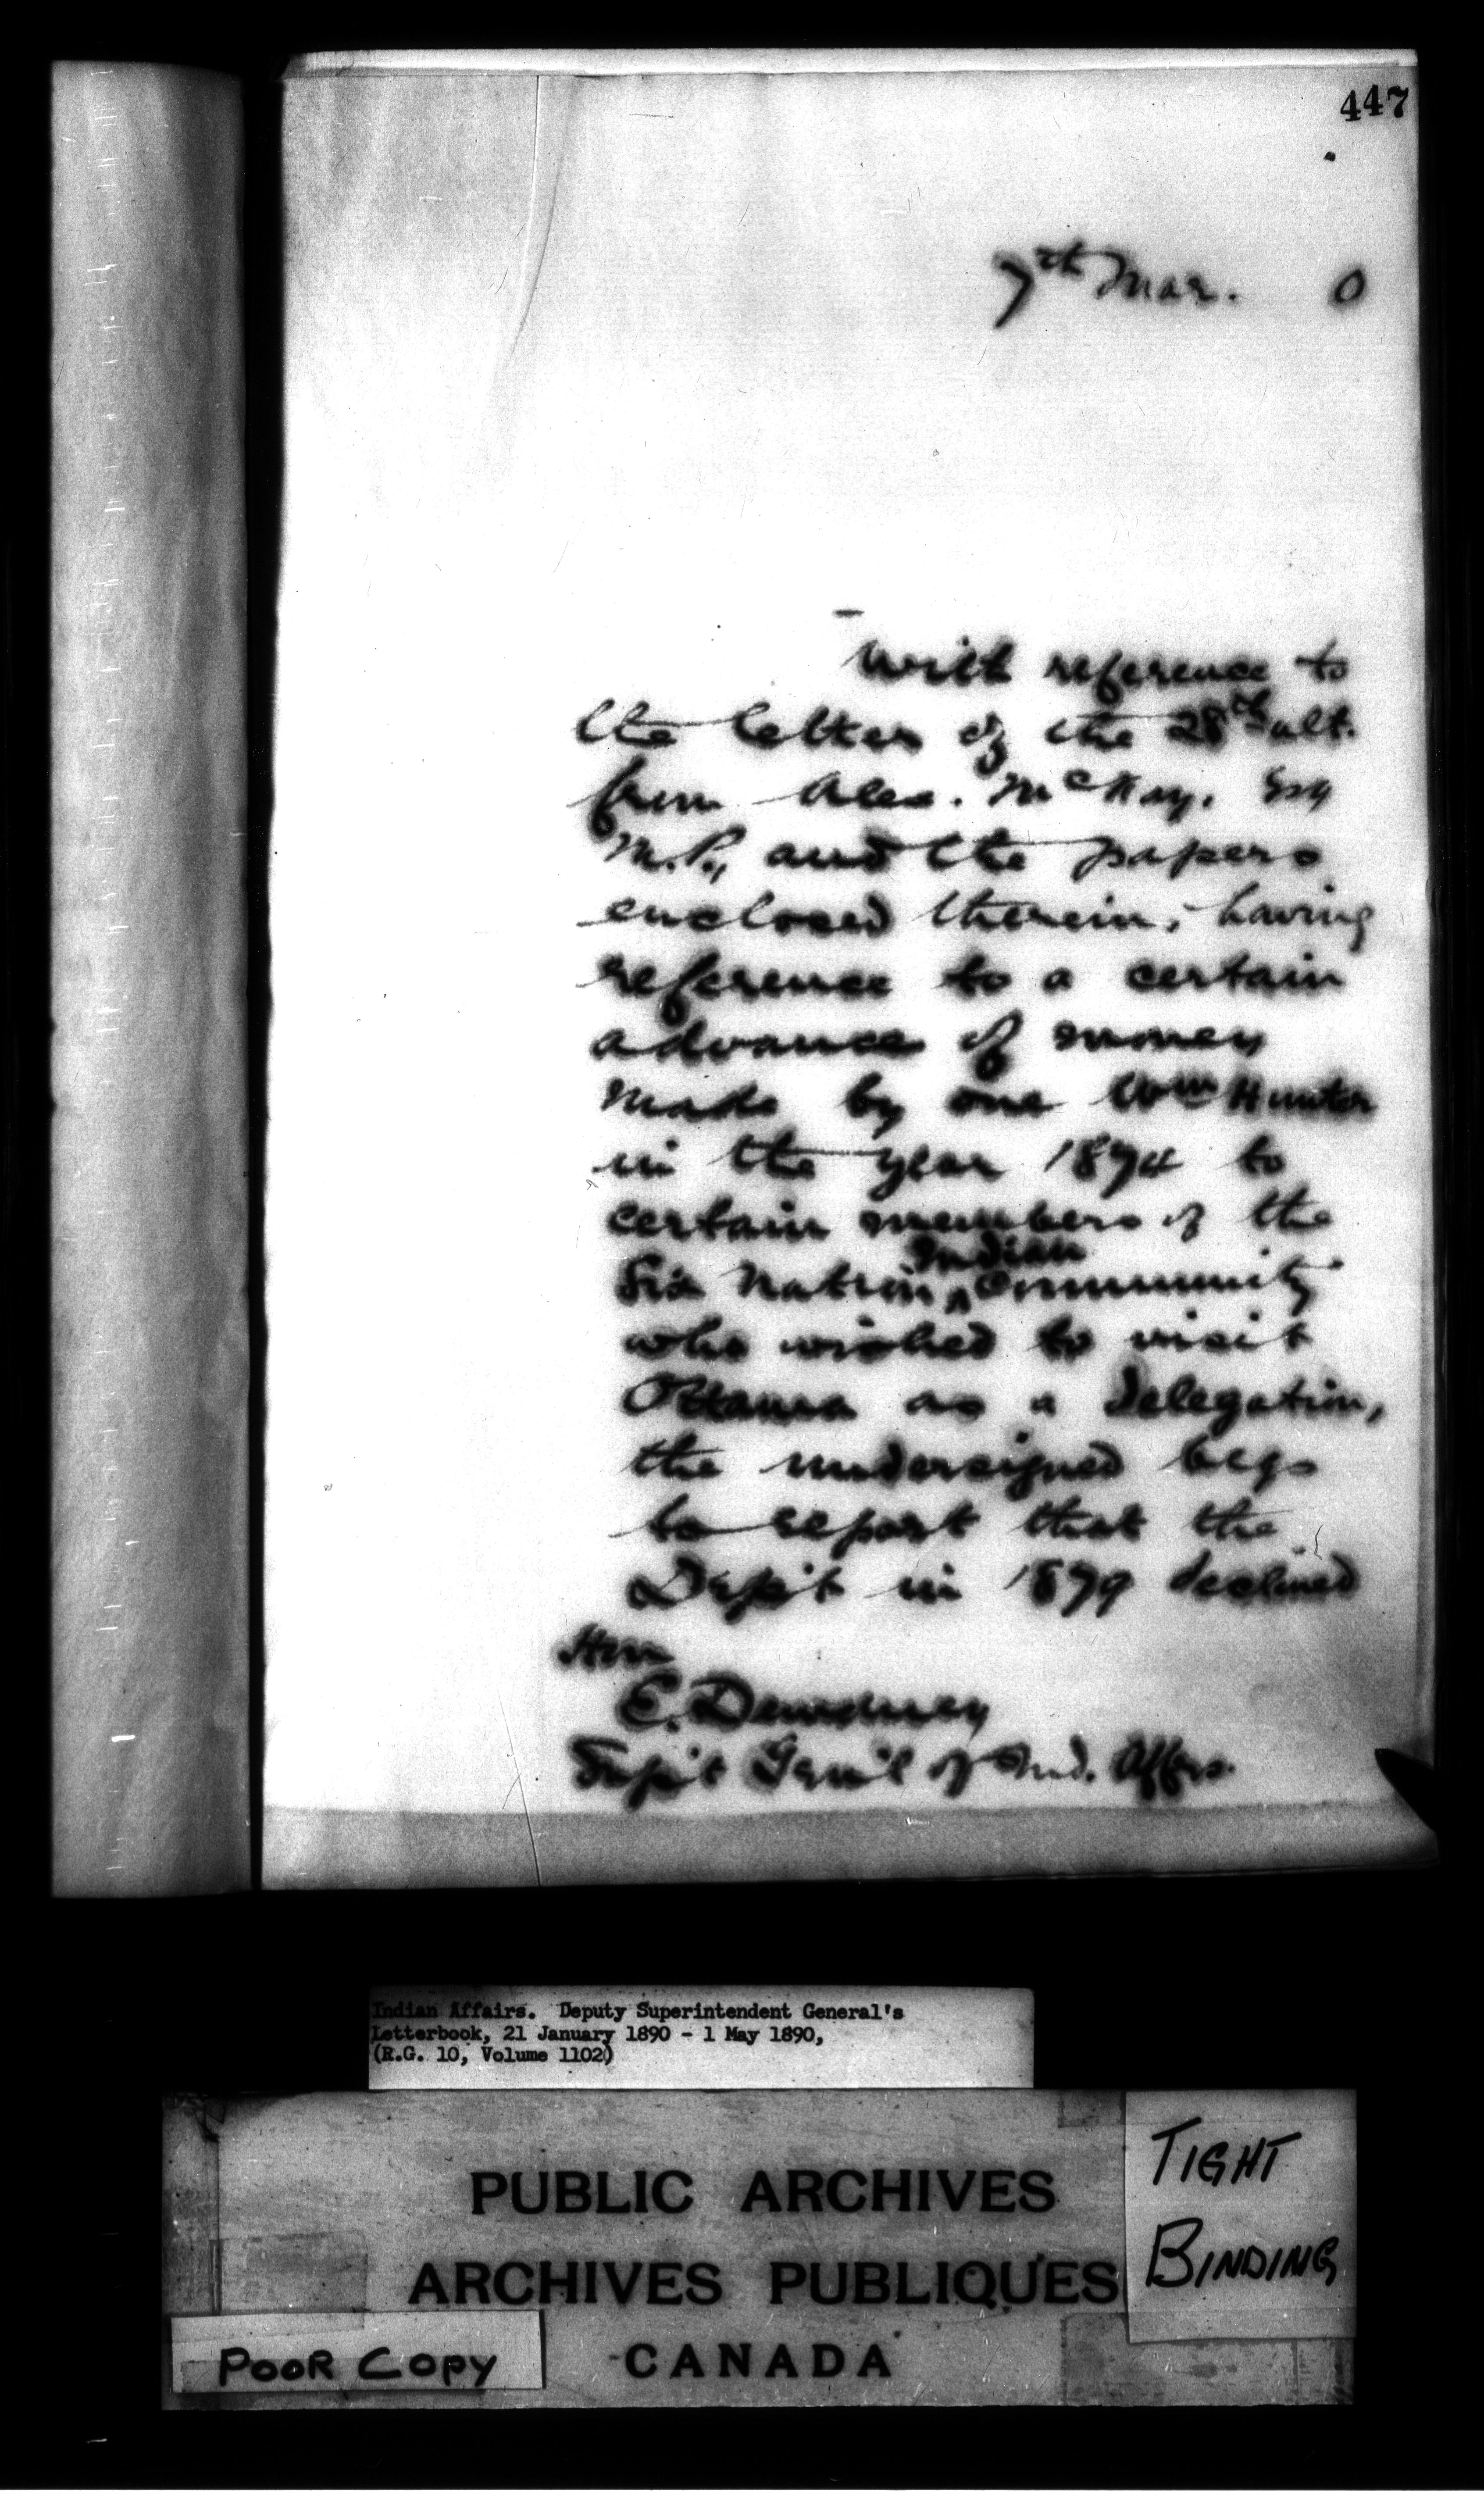 447
7th Mar. 0
With reference to
the letter of the 28th ult.
from Alex. McKay, Esq
M.P., and the papers
enclosed therein, having
reference to a certain
advance of money
made by one Wm Hunter
in the year 1874 to
certain members of the
Six Nation Indian Community
who wished to visit
Ottawa as a delegation,
the undersigned begs
to report that the
Dep't in 1879 declined
Hon
E. Dewdney
Sup't Gen'l of Ind. Affrs.
Indian Affairs. Deputy Superintendent General's
Letterbook, 21 January 1890 - 1 May 1890,
(R.G. 10, Volume 1102)
PUBLIC ARCHIVES
ARCHIVES PUBLIQUES
CANADA
TIGHT
BINDING
POOR COPY